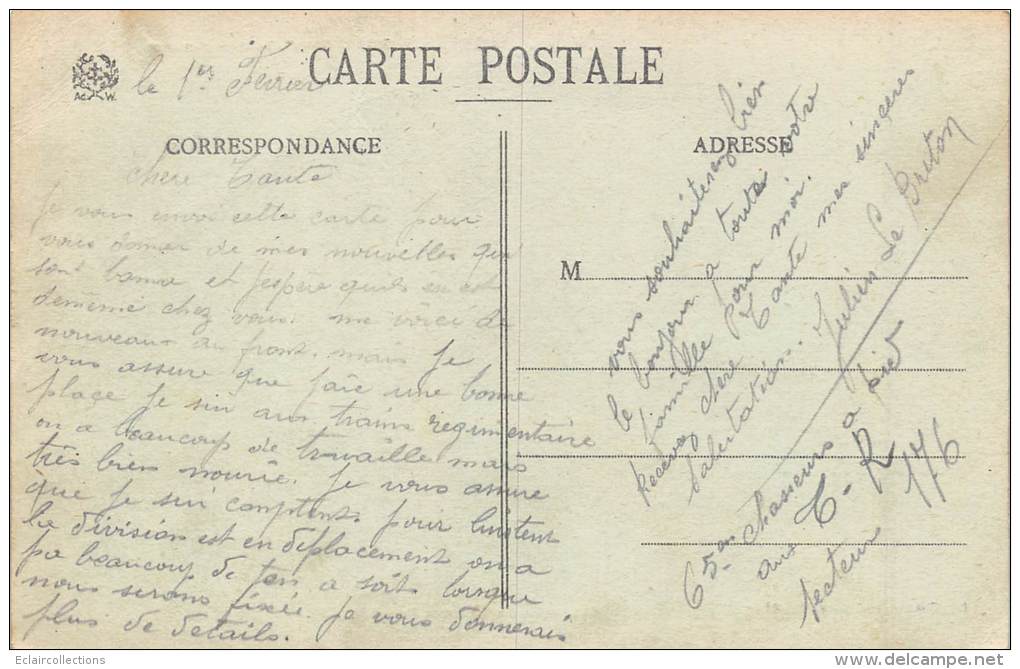 CARTE POSTALE
A. W.
le 1er Février
CORRESPONDANCE
ADRESSE
M
chere Tante
Je vous envoi cette carte pour
vous donner de mes nouvelles qui
sont bonne et j'espère qu'els en est
demême chez vous. me voici de
nouveaux au front. mais Je
vous assure que j'aie une bonne
place Je sui aux trains regimentaire
on a beaucoup de travaille mais
très bien nourie. Je vous assure
que Je sui contents pour l'instent
la division est en déplacement on a
pa beaucoup de ten a soit lorsque
nous serons fixée Je vous donnerais
plus de details.
vous souhaiterez bien
le bonjour a toute votre
famille pour moi.
Recevez chere Tante mes sinceres
Salutation. Julien Le Breton
65em chasseurs a pied
aux T-R
secteur 176
Eclaircollections
www.delcampe.net